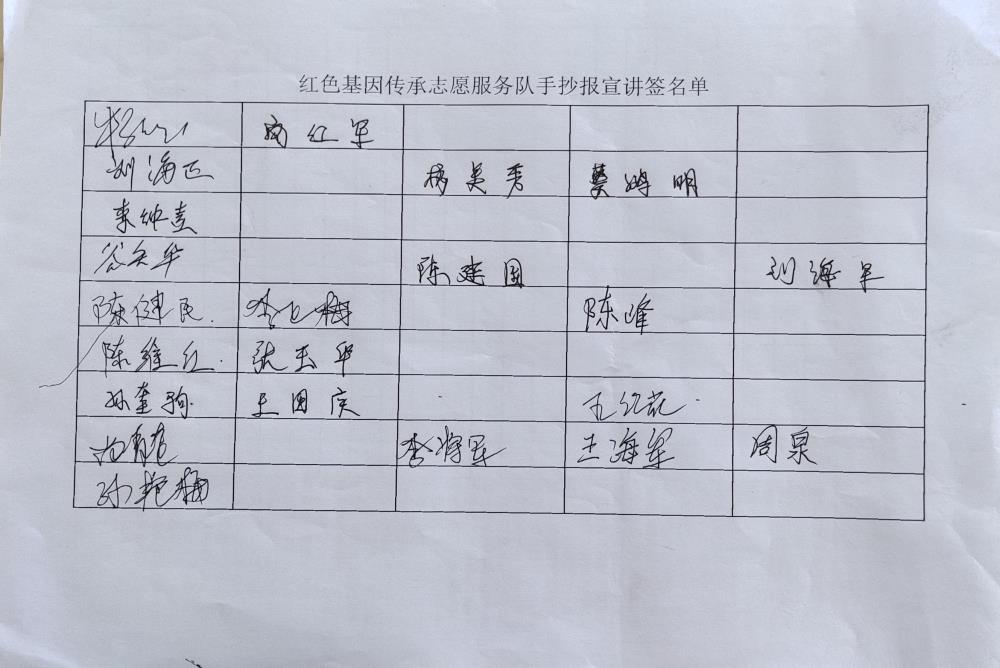 红色基因传承志愿服务队手抄报宣讲签名单
红军
刘海正 杨美秀 蔡 明
谷兵华 陈建国 刘海军
陈健民 李 梅 陈峰
陈维红 张玉华
孙奎驹 王国庆 王红花
李将军 王海军 周泉
孙艳梅